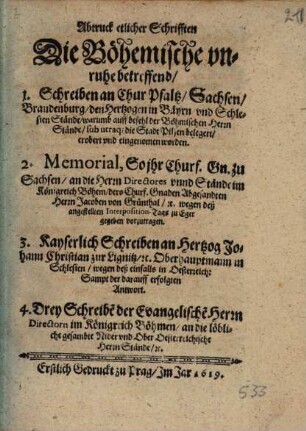 Abtruck etlicher Schrifften
Die Böhemische vn-
ruhe betreffend/
1. Schreiben an Chur Pfaltz/ Sachsen/
Brandenburg/ den Hertzogen in Bäyrn vnd Schle-
sien Stände/ warumb auß befehl der Böhmischen Herrn
Stände/ sub utraq; die Stadt Pilsen belegen/
erobert vnd eingenommen worden.
2. Memorial, So jhr Churf. Gn. zu
Sachsen/ an die Herrn Directores vnnd Stände im
Königreich Böhem/ dero Churf. Gnaden Abgesandten
Herrn Jacoben von Grünthal/ ꝛc. wegen deß
angestelten Interposition-Tags zu Eger
gegeben vorzutragen.
3. Kayserlich Schreiben an Hertzog Jo-
hann Christian zur Lignitz/ ꝛc. Oberhauptmann in
Schlesien/ wegen deß einfalls in Oesterreich:
Sampt der darauff erfolgten
Antwort.
4. Drey Schreibē der Evangelischē Herrn
Directorn im Königreich Böhmen/ an die löbli-
che gesambte Nider vnd Ober Oesterreichische
Herrn Stände/ ꝛc.
Erstlich Gedruckt zu Prag/ Im Jar 1619.
533